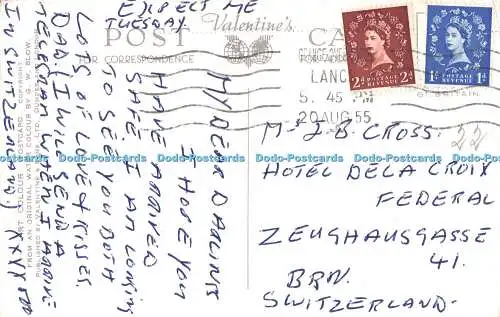 EXPECT ME
TUESDAY.
POST
Valentine's
CA
FOR CORRESPONDENCE
MY DEAR DARLING
I HOPE YOU
HAVE ARRIVED
SAFE. I AM LONGING
TO SEE YOU BOTH
LOTS OF LOVE & KISSES.
DAD (I WILL SEND A
TELEGRAM WHEN I ARRIVE
IN SWITZERLAND.)
ART COLOUR POSTCARD
FROM AN ORIGINAL WATER COLOUR BY G. W. BLOW
PUBLISHED BY VALENTINE
LANC
5. 45 PM
20 AUG 55
2d 2d
POSTAGE
REVENUE
1d 1d
POSTAGE
REVENUE
MRS J. B. CROSS. 22
HOTEL DE LA CROIX
FEDERAL
ZEUGHAUSGASSE
41.
BRN.
SWITZERLAND.
Dodo-Postcards Dodo-Postcards Dodo-Postcards Dodo-Postcards Dodo-Postcards